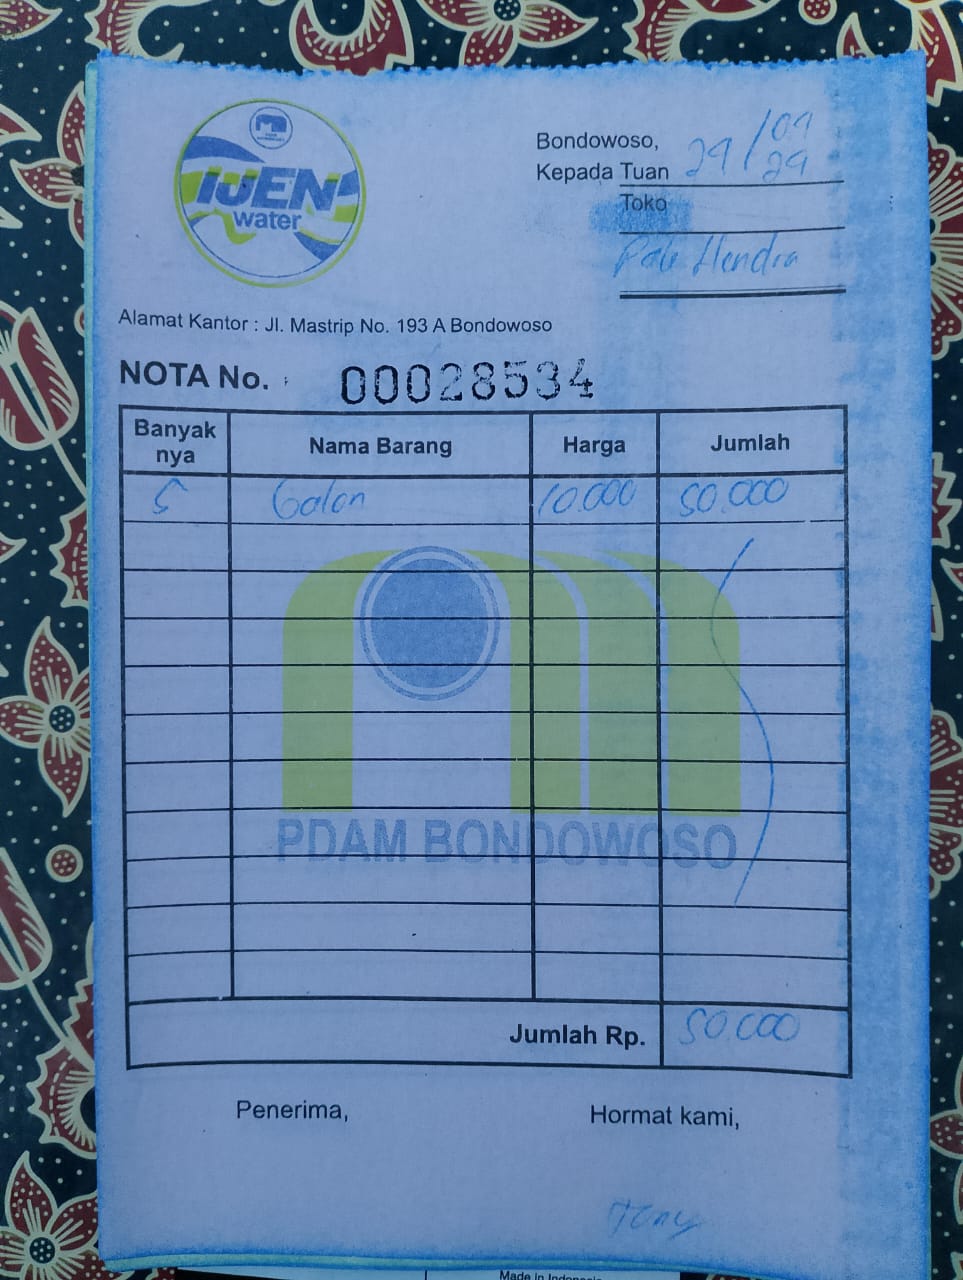 IJEN
water
Bondowoso, 29/09
Kepada Tuan 29
Toko
Pak Hendra
Alamat Kantor : Jl. Mastrip No. 193 A Bondowoso
NOTA No. : 00028534
Banyak nya Nama Barang Harga Jumlah
5 Galon 10.000 50.000
PDAM BONDOWOSO
Jumlah Rp. 50.000
Penerima, Hormat kami,
Tony
Made in Indonesia